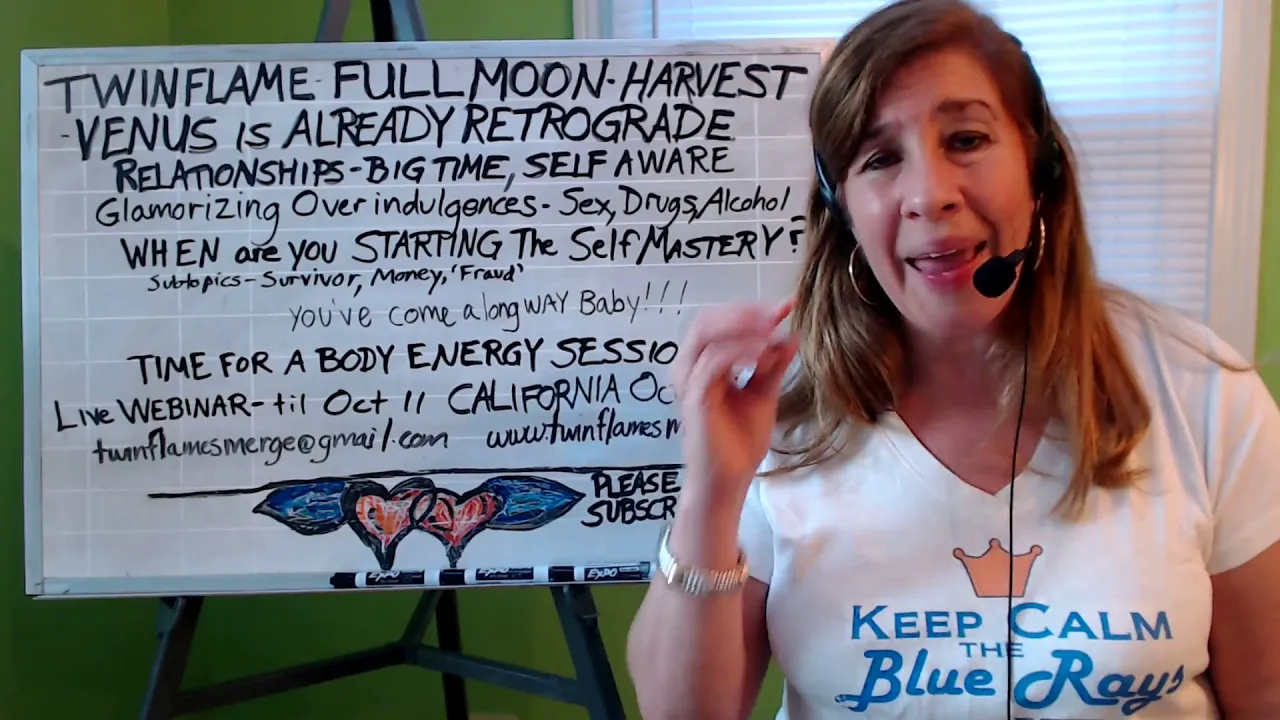 TWINFLAME-FULL MOON-HARVEST
-VENUS IS ALREADY RETROGRADE
RELATIONSHIPS-BIG TIME, SELF AWARE
Glamorizing Over indulgences- Sex, Drugs, Alcohol
WHEN are you STARTING The Self MASTERY?
Subtopics- Survivor, Money, 'Fraud'
You've come a long WAY Baby!!!
TIME FOR A BODY ENERGY SESSIO
Live WEBINAR- til Oct 11 CALIFORNIA Oc
twinflamesmerge@gmail.com www.twinflamesm
PLEASE
SUBSCR
EXPO EXPO EXPO
KEEP CALM
THE
Blue Rays